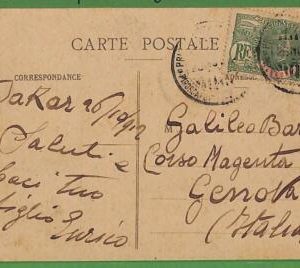 CARTE POSTALE
CORRESPONDANCE
ADRESSE
RF
Dakar 26/10/12
Saluti e
baci tuo
figlio Enrico
M
Galileo Bar
Corso Magenta
Genova
Italia